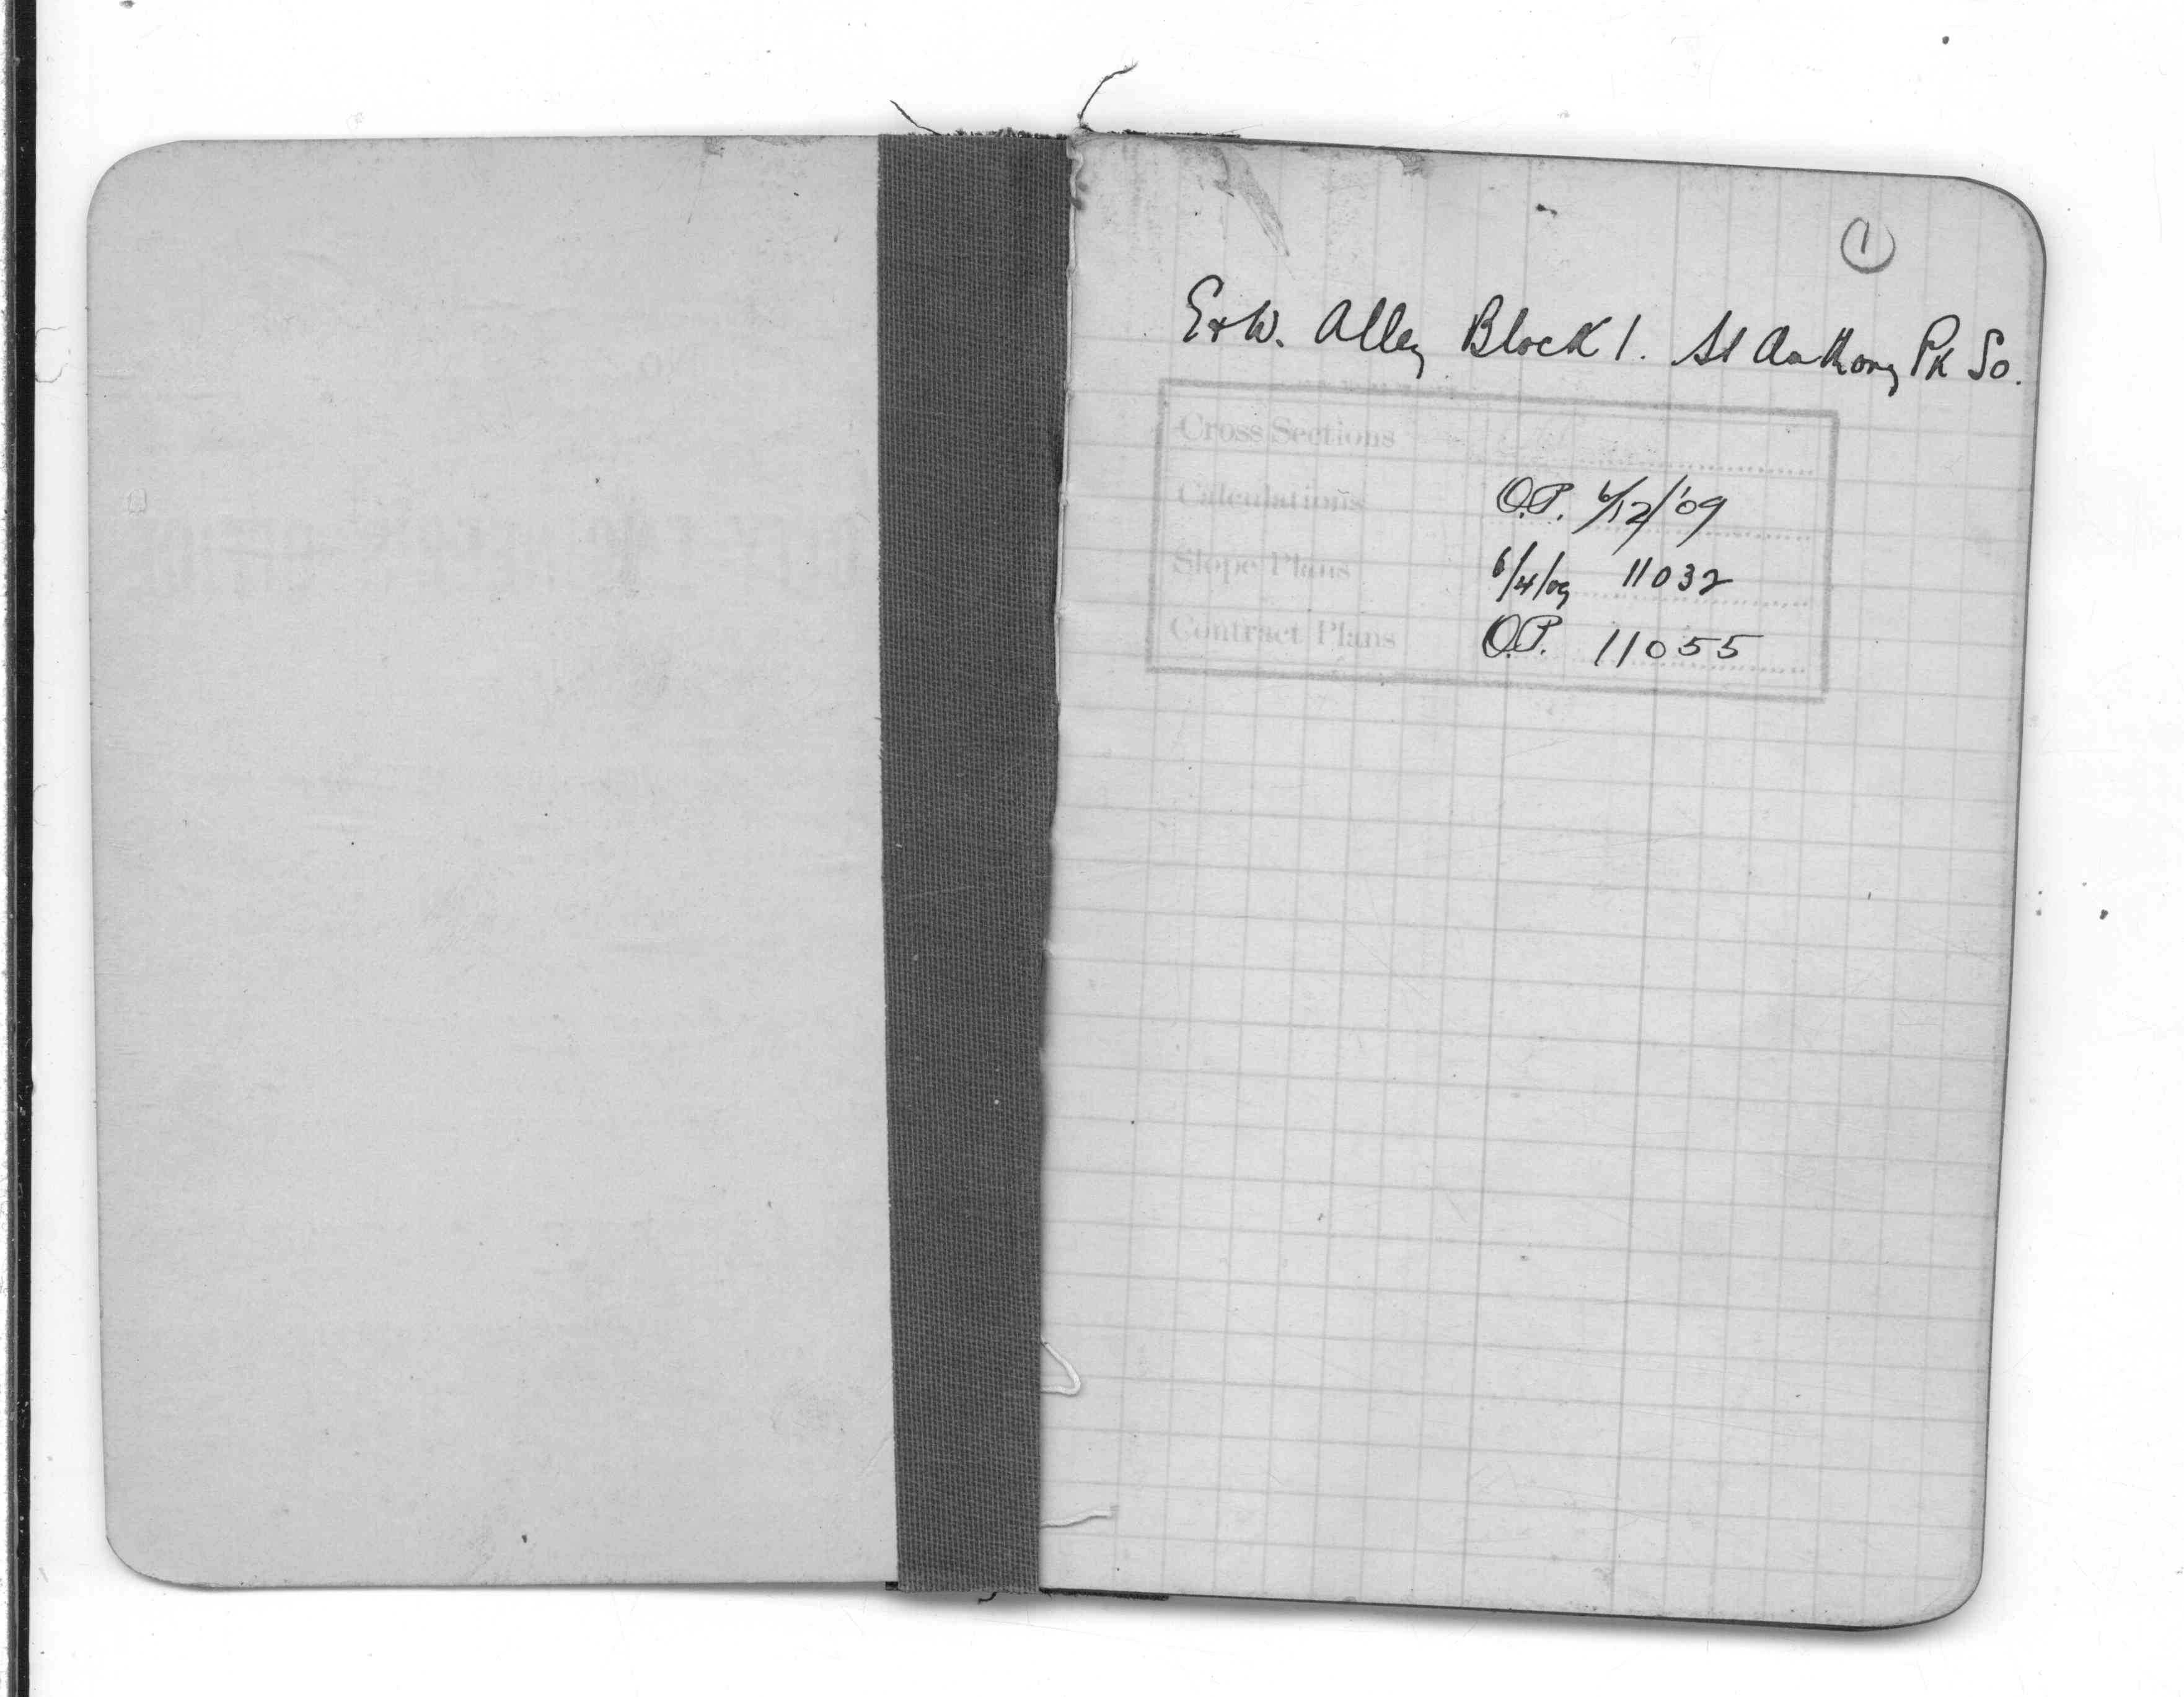 1
E & W. Alley Block 1. St Anthony Pk So.
Cross Sections
Calculations O.P. 6/12/'09
Slope Plans 6/4/09 11032
Contract Plans O.P. 11055